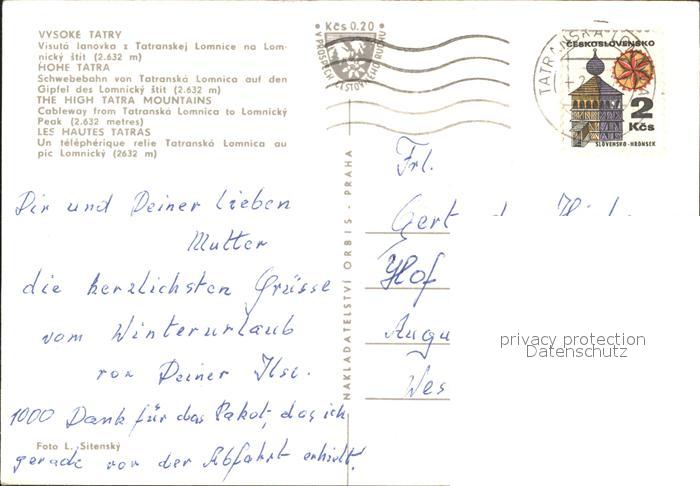 VYSOKÉ TATRY
Visutá lanovka z Tatranskej Lomnice na Lom-
nický štít (2.632 m)
HOHE TATRA
Schwebebahn von Tatranská Lomnica auf den
Gipfel des Lomnický štít (2.632 m)
THE HIGH TATRA MOUNTAINS
Cableway from Tatranská Lomnica to Lomnický
Peak (2.632 metres)
LES HAUTES TATRAS
Un téléphérique relie Tatranská Lomnica au
pic Lomnický (2632 m)
Kčs 0.20
V PROSPĚCH CESTOVNÉHO RUCHU
TATRANSKÁ
ČESKOSLOVENSKO
2
Kčs
SLOVENSKO-HRONSEK
NAKLADATELSTVÍ ORBIS - PRAHA
Frl.
Gert
Hof
Augu
Wes
privacy protection
Datenschutz
Dir und Deiner lieben
Mutter
die herzlichsten Grüsse
vom Winterurlaub
von Deiner Ilse.
1000 Dank für das Paket, das ich
gerade vor der Abfahrt erhielt!
Foto L. Sitenský